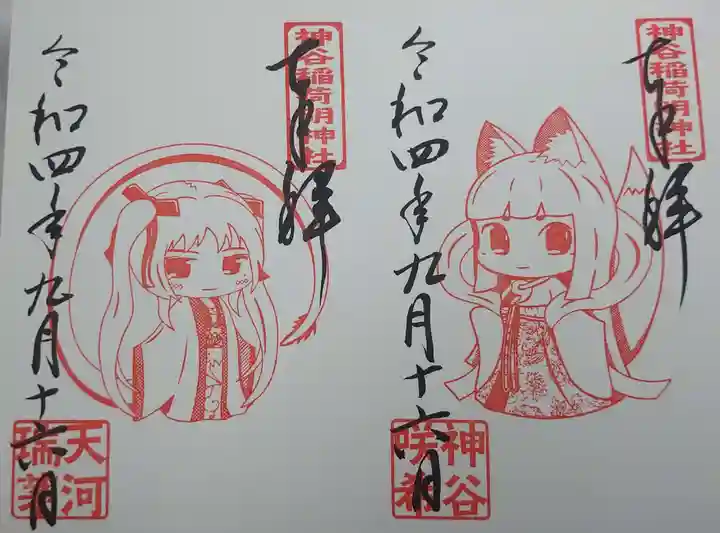 神谷稲荷明神社
奉拝
令和四年九月十六日
神谷
咲希
神谷稲荷明神社
奉拝
令和四年九月十六日
天河
瑞